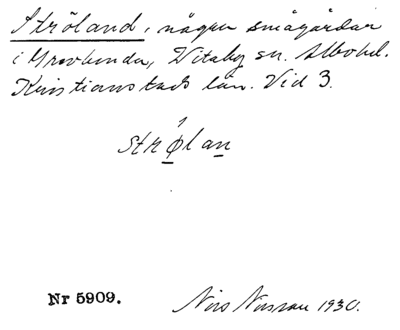 Ströland, några smågårdar
i Grevlunda, Vitaby sn. Albo hd.
Kristianstads län. Vid 3.
strølan
Nr 5909.
Nils 1930.